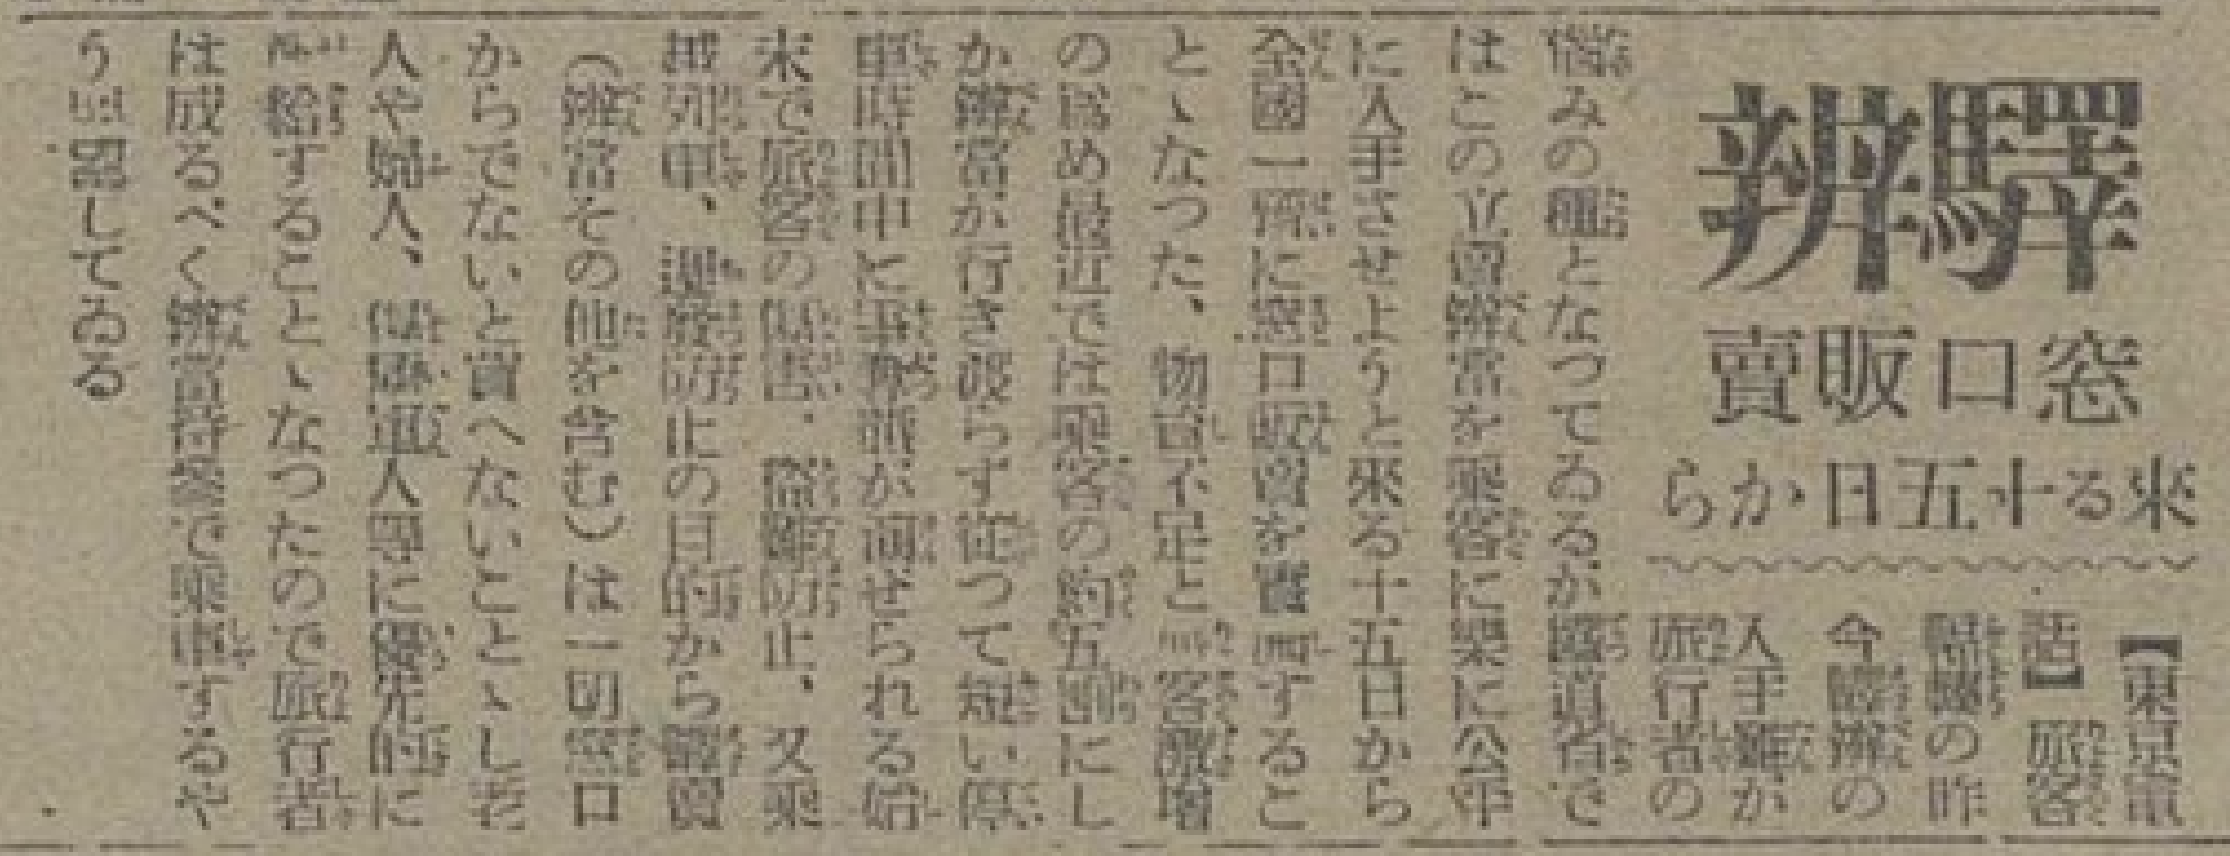 驛辨
窓口販賣
來る十五日から
【東京電
話】旅客
の昨
今驛辨の
入手難が
旅行者の
悩みの種となつてゐるが鐵道省で
はこの立賣辨當を乘客に樂に公平
に入手させようと來る十五日から
全國一齊に窓口販賣を實施するこ
とゝなつた、物資不足と旅客激増
の爲め最近では乘客の約五割にし
か辨當が行き渡らず從つて短い停
車時間中に爭奪戰が演ぜられる始
末で旅客の傷害、盜難防止、又乘
越列車、遲發防止の目的から驛賣
(辨當その他を含む)は一切窓口
からでないと買へないことゝし老
人や婦人、傷痍軍人等に優先的に
配給することゝなつたので旅行者
は成るべく辨當持參で乘車するや
う要認してゐる